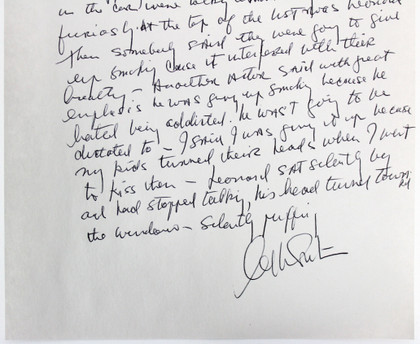 in the car were
furiously. At the top of the list was Leonard
Then somebody said they were going to give
up smoking cause it interfered with their
beauty - Another Actor said with great
emphasis he was giving up smoking because he
hated being addicted. he wasn't going to be
dictated to - I said I was giving it up because
my kids turned their heads when I went
to kiss them - Leonard sat silently by
and had stopped talking, his head turned toward
the window - silently puffing